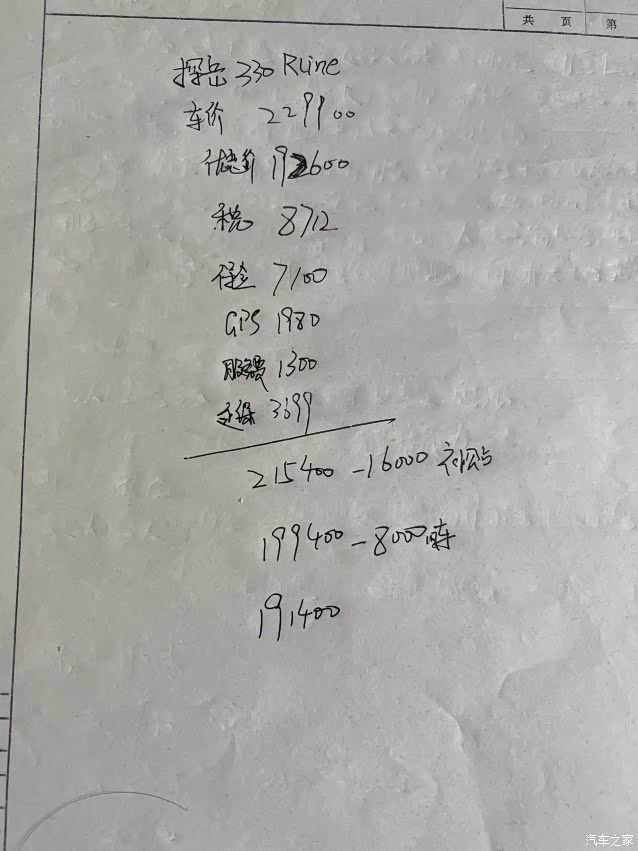 共 页 第
探岳 330 Rline
车价 229900
优惠价 192600
税 8712
保险 7100
GPS 1980
服务费 1300
延保 3699
215400 - 16000 补贴
199400 - 8000
191400
汽车之家